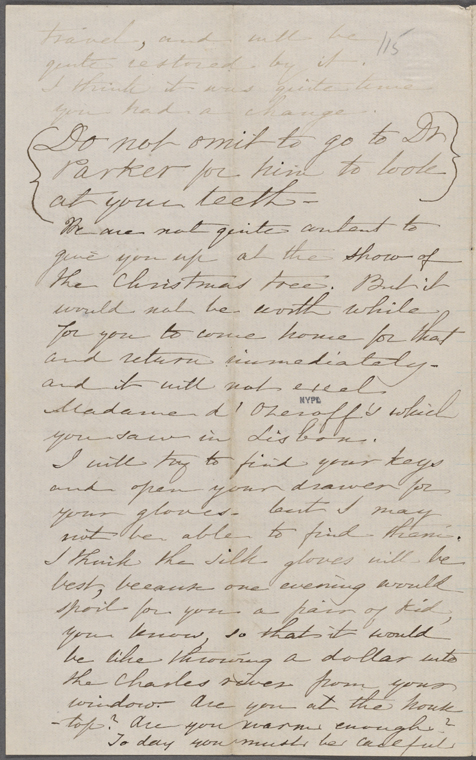 travel, and will be
115
quite restored by it.
I think it was quite time
you had a change.
Do not omit to go to Dr
Parker for him to look
at your teeth—
We are not quite content to
give you up at the show of
the Christmas tree. But it
would not be worth while
for you to come home for that
and return immediately—
and it will not excel
NYPL
Madame d'Ozeroff's which
you saw in Lisbon.
I will try to find your keys
and open your drawer for
your gloves— but I may
not be able to find them.
I think the silk gloves will be
best, because one evening would
spoil for you a pair of kid,
you know, so that it would
be like throwing a dollar into
the Charles river from your
window. Are you at the house
-top? Are you warm enough?
Today you must be careful